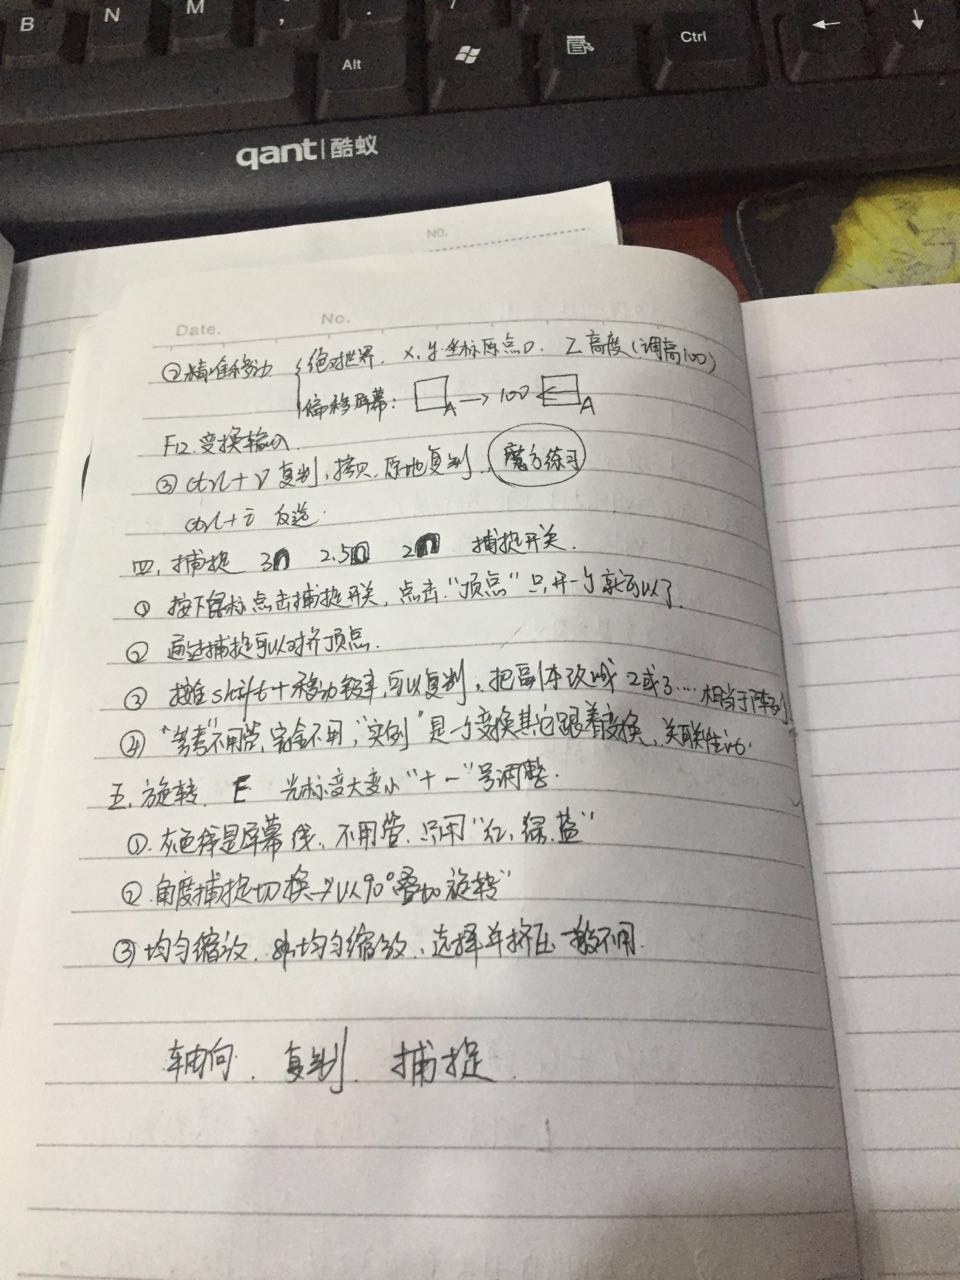 B N M , . /
Alt Ctrl ← ↓
qant 酷蚁
NO.
Date. No.
②精准移动 绝对世界. x, y 坐标原点0. Z高度(调高100)
偏移屏幕: A → 100 A
F12.变换输入
③ ctrl+V 复制,拷贝,原地复制. 魔方练习
ctrl+i 反选.
四、捕捉 3 2.5 2 捕捉开关.
① 按下鼠标点击捕捉开关,点击“顶点”只开一个就可以了.
② 通过捕捉可以对齐顶点.
③ 按住shift+移动转车,可以复制,把副本改成2或3....相当于阵列
④ “参考”不用管,完全不用,“实例”是一个变换其它跟着变换、关联性
五、旋转. E 光标变大变小“+ -”号调整.
①.灰色线是屏幕线,不用管.只用“红,绿.蓝”
②.角度捕捉切换→以90°旋转”
③ 均匀缩放.非均匀缩放、选择并挤压 一般不用.
轴向. 复制. 捕捉.